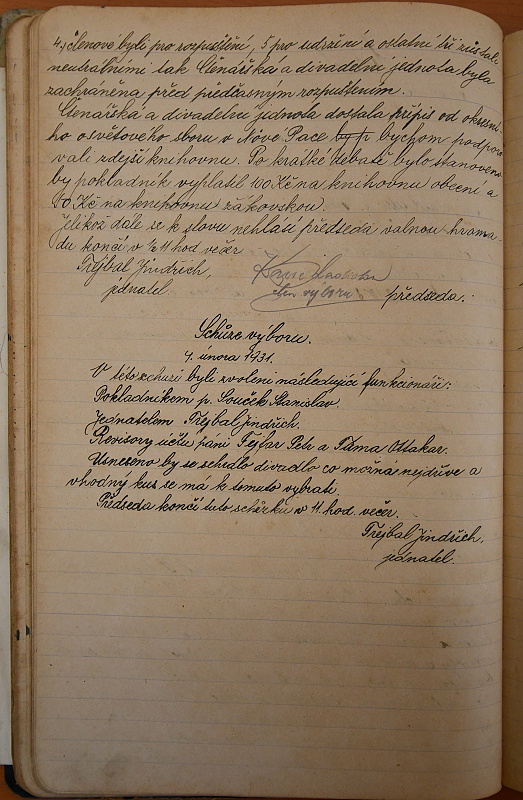 4, členové byli pro rozpuštění, 5 pro udržení a ostatní tři zůstali
neutrálními tak Čtenářská a divadelní jednota byla
zachráněna před předčasným rozpuštěním.
Čtenářská a divadelní jednota dostala přípis od okresní-
ho osvětového sboru v Nové Pace by p bychom podporo-
vali zdejší knihovnu. Po krátké debatě bylo stanoveno
by pokladník vyplatil 100 Kč na knihovnu obecní a
Kč na knihovnu žákovskou.
Jelikož dále se k slovu nehlásí předseda valnou hroma-
du končí v ½ 11 hod večer
Trejbal Jindřich,
jednatel
člen výboru předseda.
Schůze výboru.
února 1931.
V této schůzi byli zvoleni následující funkcionáři:
Pokladníkem p. Souček Stanislav.
Jednatelem Trejbal Jindřich.
Revisory účtů páni Fejfar Petr a Tůma Ottakar.
Usneseno by se sehrálo divadlo co možná nejdříve a
vhodný kus se má k tomuto vybrati.
Předseda končí tuto schůzku v 11. hod. večer.
Trejbal Jindřich,
jednatel.